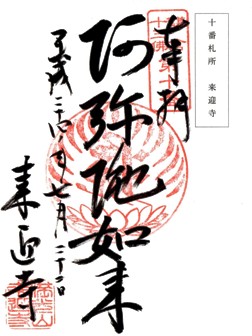 十番札所　来迎寺
奉拝
阿弥陀如来
平成二十四年七月二十二日
来迎寺